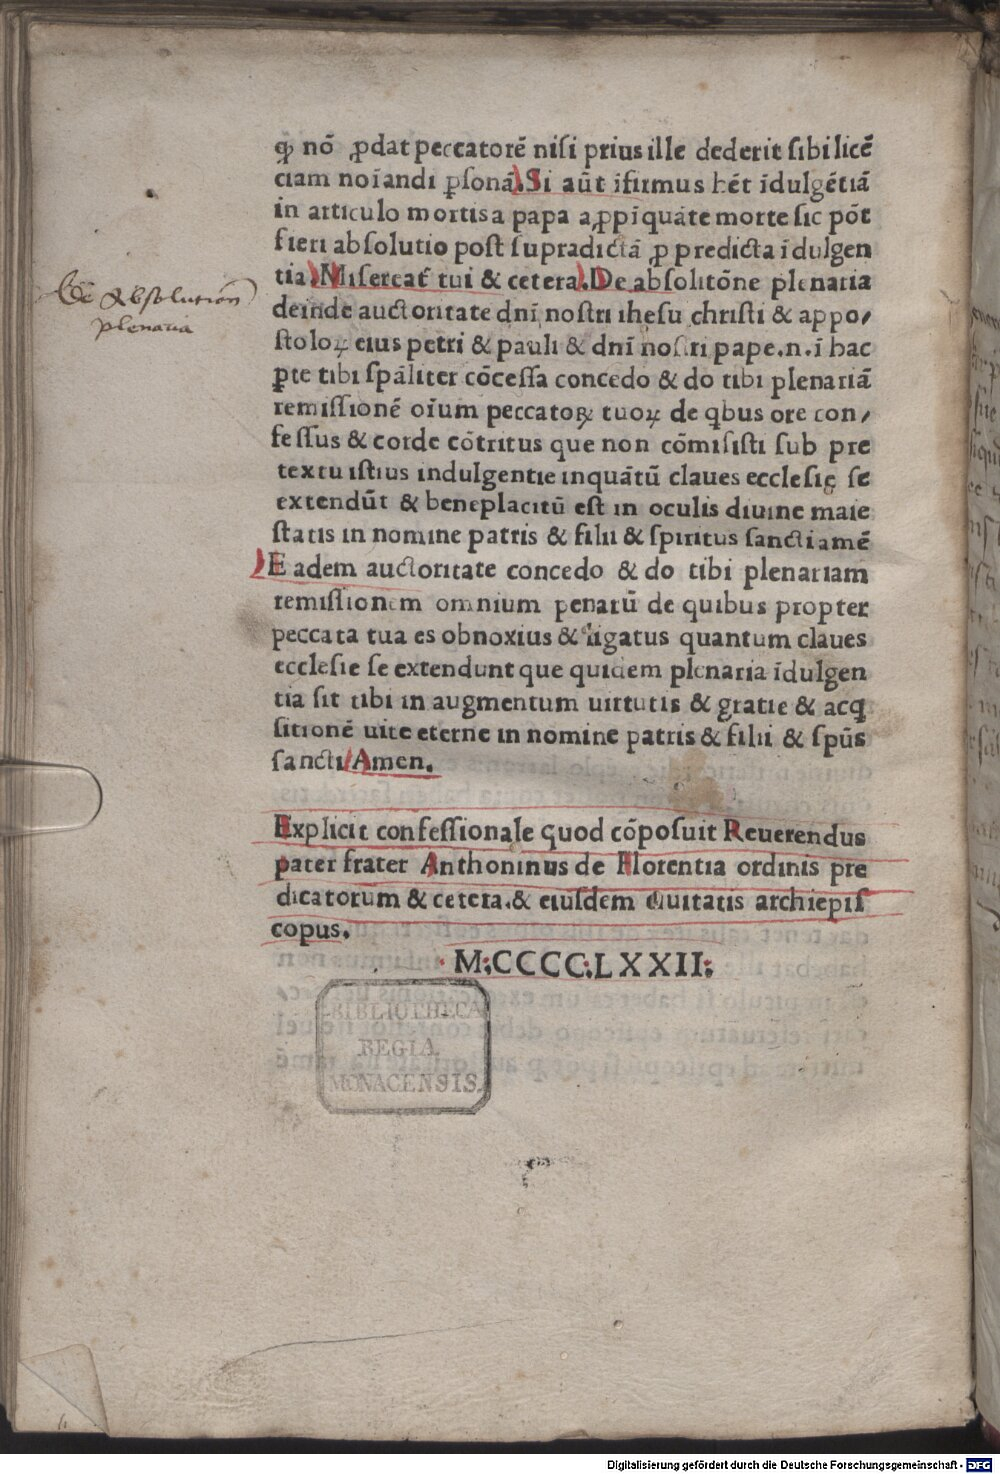 ꝙ nō ꝓdat peccatorē nisi prius ille dederit sibi licē
ciam noīandi ꝑsonā. Si aūt īfirmus hēt īdulgētiā
in articulo mortis a papa aꝓpīquāte morte sic pōt
fieri absolutio post supradictā ꝓ predicta īdulgen
tia. Misereat̄ tui & cetera. De absolitōne plenaria
De Absolution̄
plenaria
deinde auctoritate dnī nostri ihesu christi & appo,
stoloꝝ eius petri & pauli & dnī nostri pape.n.ī hac
ꝑte tibi spāliter cōcessa concedo & do tibi plenariā
remissionē oīum peccatoꝝ tuoꝝ de qbus ore con,
fessus & corde cōtritus que non cōmisisti sub pre
textu istius indulgentie inquātū claues ecclesię se
extendūt & beneplacitū est in oculis diuine maie
statis in nomine patris & filii & spiritus sancti amē
Eadem auctoritate concedo & do tibi plenariam
remissionem omnium penarū de quibus propter
peccata tua es obnoxius & ligatus quantum claues
ecclesie se extendunt que quidem plenaria īdulgen
tia sit tibi in augmentum uirtutis & gratie & acq
sitionē uite eterne in nomine patris & filii & spūs
sancti Amen.
Explicit confessionale quod cōposuit Reuerendus
pater frater Anthoninus de Florentia ordinis pre
dicatorum & cetera.& eiusdem ciuitatis archiepis
copus.
M:CCCC:LXXII:
BIBLIOTHECA
REGIA
MONACENSIS.
Digitalisierung gefördert durch die Deutsche Forschungsgemeinschaft - DFG